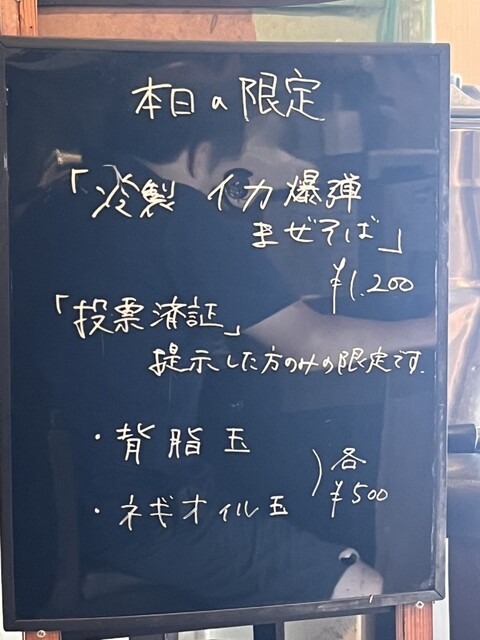 本日の限定
「冷製 イカ爆弾
まぜそば」
¥1.200
「投票済証」
提示した方のみの限定です.
・背脂玉
・ネギオイル玉
) 各
¥500